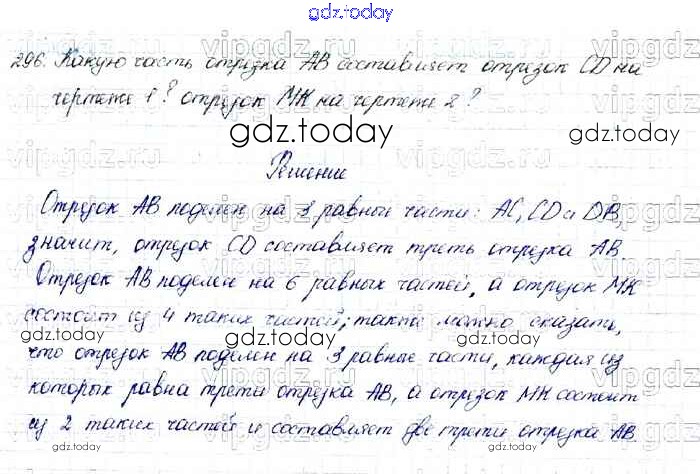 gdz.today
296. Какую часть отрезка AB составляет отрезок CD на
чертеже 1? отрезок MK на чертеже 2?
gdz.today
gdz.today
Решение
Отрезок AB поделен на 3 равные части: AC, CD и DB,
значит, отрезок CD составляет треть отрезка AB.
Отрезок AB поделен на 6 равных частей, а отрезок MK
состоит из 4 таких частей; также можно сказать,
gdz.today
gdz.today
что отрезок AB поделен на 3 равные части, каждая из
которых равна трети отрезка AB, а отрезок MK состоит
из 2 таких частей и составляет две трети отрезка AB
gdz.today
gdz.today